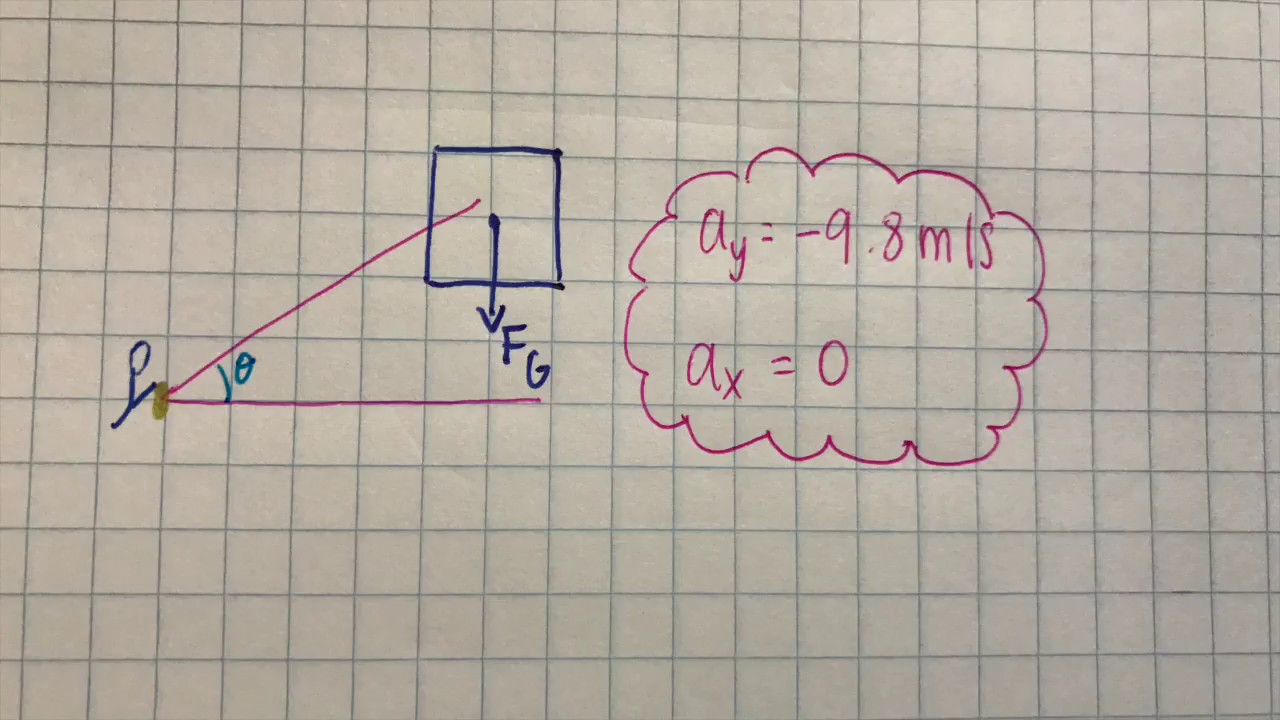 P
θ
F_G
a_y = -9.8 m/s
a_x = 0